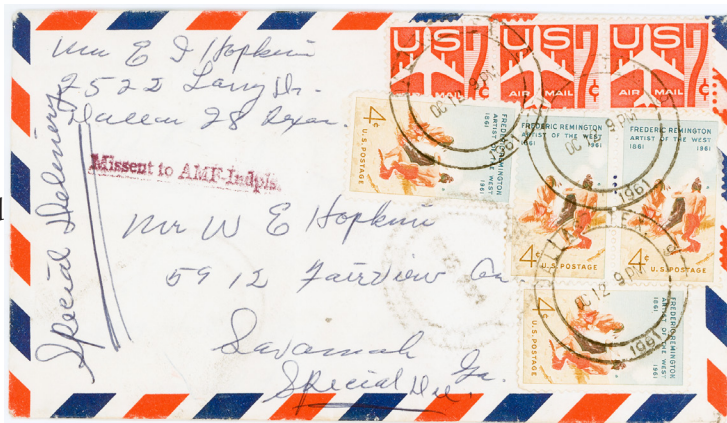 Mrs E I Hopkins
2522 Larry Dr.
Dallas 28 Texas
Special Delivery
Missent to AMF-Indpls.
Mr W E Hopkins
5912 Fairview
Savannah Ga.
Special Del.
US 7¢
AIR MAIL
US 7¢
AIR MAIL
US 7¢
AIR MAIL
OC 12 9 PM
1961
OC 12 9 PM
1961
OC 12 9 PM
1961
FREDERIC REMINGTON
ARTIST OF THE WEST
1861 1961
4¢ U.S. POSTAGE
FREDERIC REMINGTON
ARTIST OF THE WEST
1861 1961
4¢ U.S. POSTAGE
FREDERIC REMINGTON
ARTIST OF THE WEST
1861 1961
4¢ U.S. POSTAGE
FREDERIC REMINGTON
ARTIST OF THE WEST
1861 1961
4¢ U.S. POSTAGE